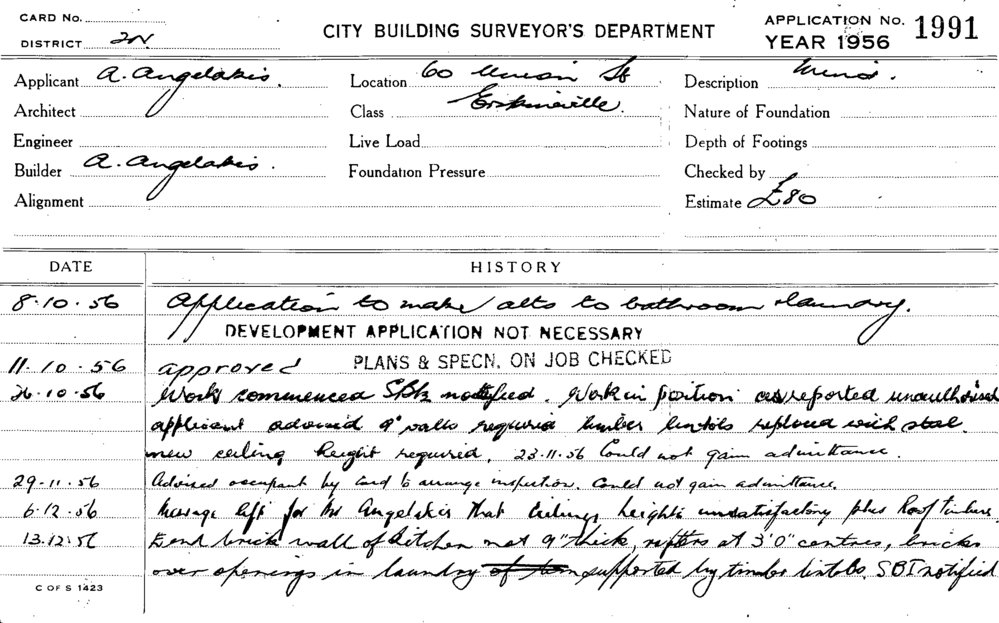 CARD No.
DISTRICT 2N.
CITY BUILDING SURVEYOR'S DEPARTMENT
APPLICATION No. 1991
YEAR 1956
Applicant A. Angelakis.
Location 60 Union St
Description Minor.
Architect
Class Erskineville.
Nature of Foundation
Engineer
Live Load
Depth of Footings
Builder A. Angelakis.
Foundation Pressure
Checked by
Alignment
Estimate £80
DATE
HISTORY
8.10.56 Application to make alts to bathroom & laundry.
DEVELOPMENT APPLICATION NOT NECESSARY
11.10.56 approved PLANS & SPECN. ON JOB CHECKED
26.10.56 Work commenced notified. Work in position as reported unauthorised
applicant advised 9" walls required timber lintols replaced with steel.
new ceiling height required. 23.11.56 Could not gain admittance.
29.11.56 Advised occupant by card to arrange inspection. Could not gain admittance.
6.12.56 Message left for Mr Angelakis that ceilings heights unsatisfactory plus Roof timbers.
13.12.56 End brick wall of kitchen not 9" thick, rafters at 3'0" centres, bricks
over openings in laundry supported by timber lintols. SBI notified
C OF S 1423